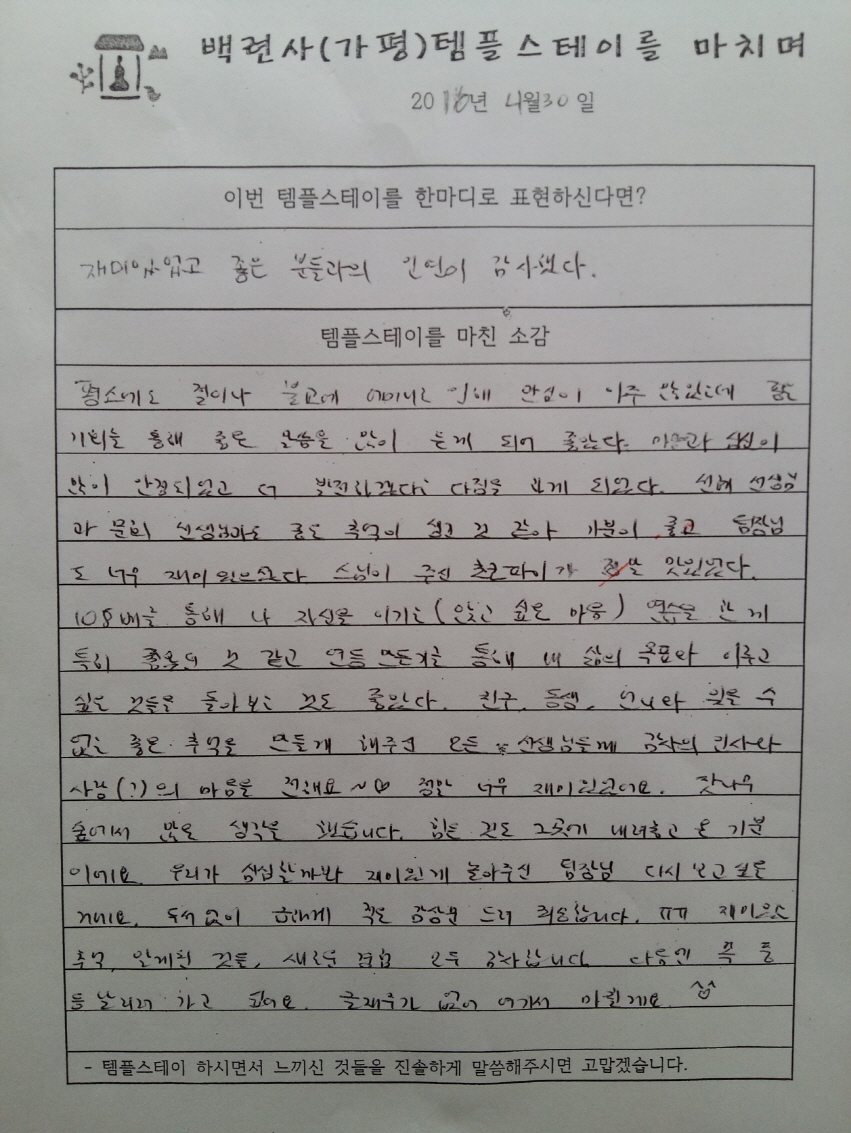 백련사(가평)템플스테이를 마치며
2016년 4월30일
이번 템플스테이를 한마디로 표현하신다면?
재미있었고 좋은 분들과의 인연이 감사했다.
템플스테이를 마친 소감
평소에도 절이나 불교에 어머니로 인해 관심이 아주 많았는데 템플
기회를 통해 좋은 말씀을 많이 듣게 되어 좋았다. 마음과 심신이
많이 안정되었고 더 발전하겠다는 다짐을 하게 되었다. 선해 선생님
과 문희 선생님과도 좋은 추억이 생긴 것 같아 기분이 좋고 팀장님
도 너무 재미있으셨다 스님이 주신 초코파이가 정말 맛있었다.
108배를 통해 나 자신을 이기는(앉고 싶은 마음) 연습을 한 게
특히 좋았던 것 같고 연등 만들기를 통해 내 삶의 목표와 이루고
싶은 것들을 돌아보는 것도 좋았다. 친구, 동생, 언니와 잊을 수
없는 좋은 추억을 만들게 해주신 모든 선생님들께 감사의 인사와
사랑(?)의 마음을 전해요~♡ 정말 너무 재미있었어요. 잣나무
숲에서 많은 생각을 했습니다. 힘든 것도 그곳에 내려놓고 온 기분
이에요. 우리가 심심할까봐 재미있게 놀아주신 팀장님 다시 보고 싶을
거예요. 두서 없이 쓴 감상문 드려 죄송합니다. ㅠㅠ 재미있는
추억, 알게된 것들, 새로운 경험 모두 감사합니다. 다음엔
가고 싶어요. 글재주가 없어 여기서 마칠게요
- 템플스테이 하시면서 느끼신 것들을 진솔하게 말씀해주시면 고맙겠습니다.